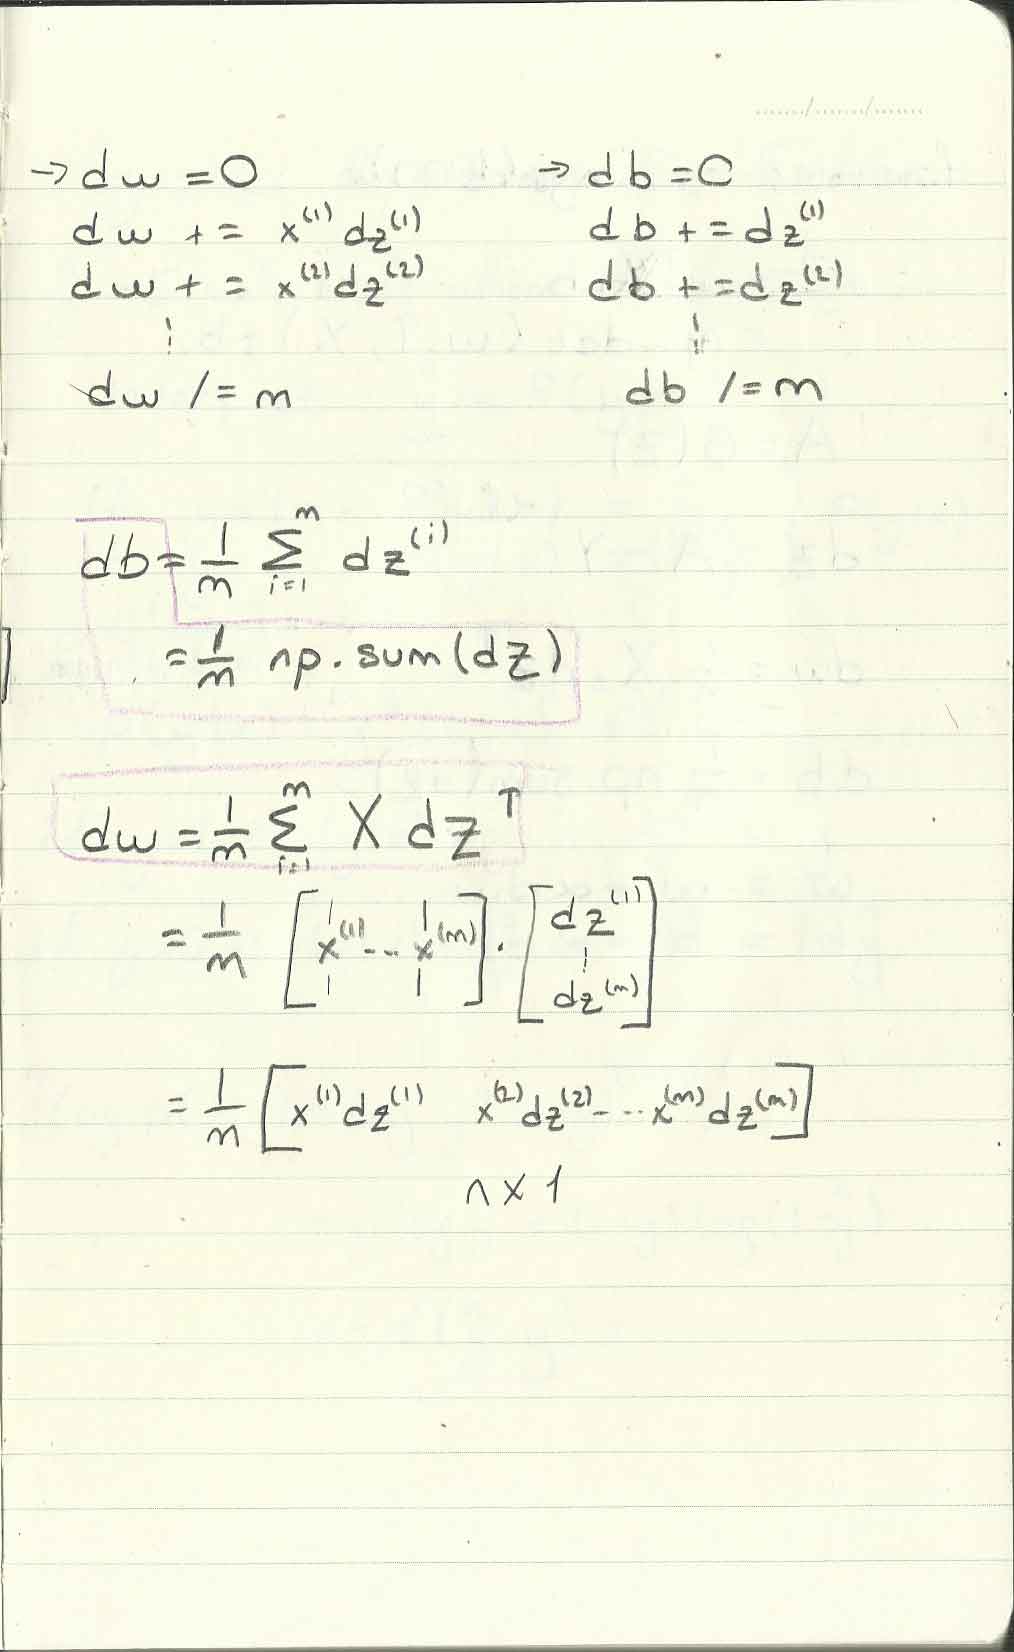 → dw = 0 → db = 0
dw += x⁽¹⁾ dz⁽¹⁾ db += dz⁽¹⁾
dw += x⁽²⁾ dz⁽²⁾ db += dz⁽²⁾
⋮ ⋮
dw /= m db /= m
db = 1/m Σ_{i=1}^{m} dz⁽ⁱ⁾
= 1/m np.sum(dz)
dw = 1/m Σ_{i=1}^{m} X dz^T
= 1/m [x⁽¹⁾ ... x⁽ᵐ⁾] · [dz⁽¹⁾ ⋮ dz⁽ᵐ⁾]
= 1/m [x⁽¹⁾dz⁽¹⁾ x⁽²⁾dz⁽²⁾ ... x⁽ᵐ⁾dz⁽ᵐ⁾]
n x 1